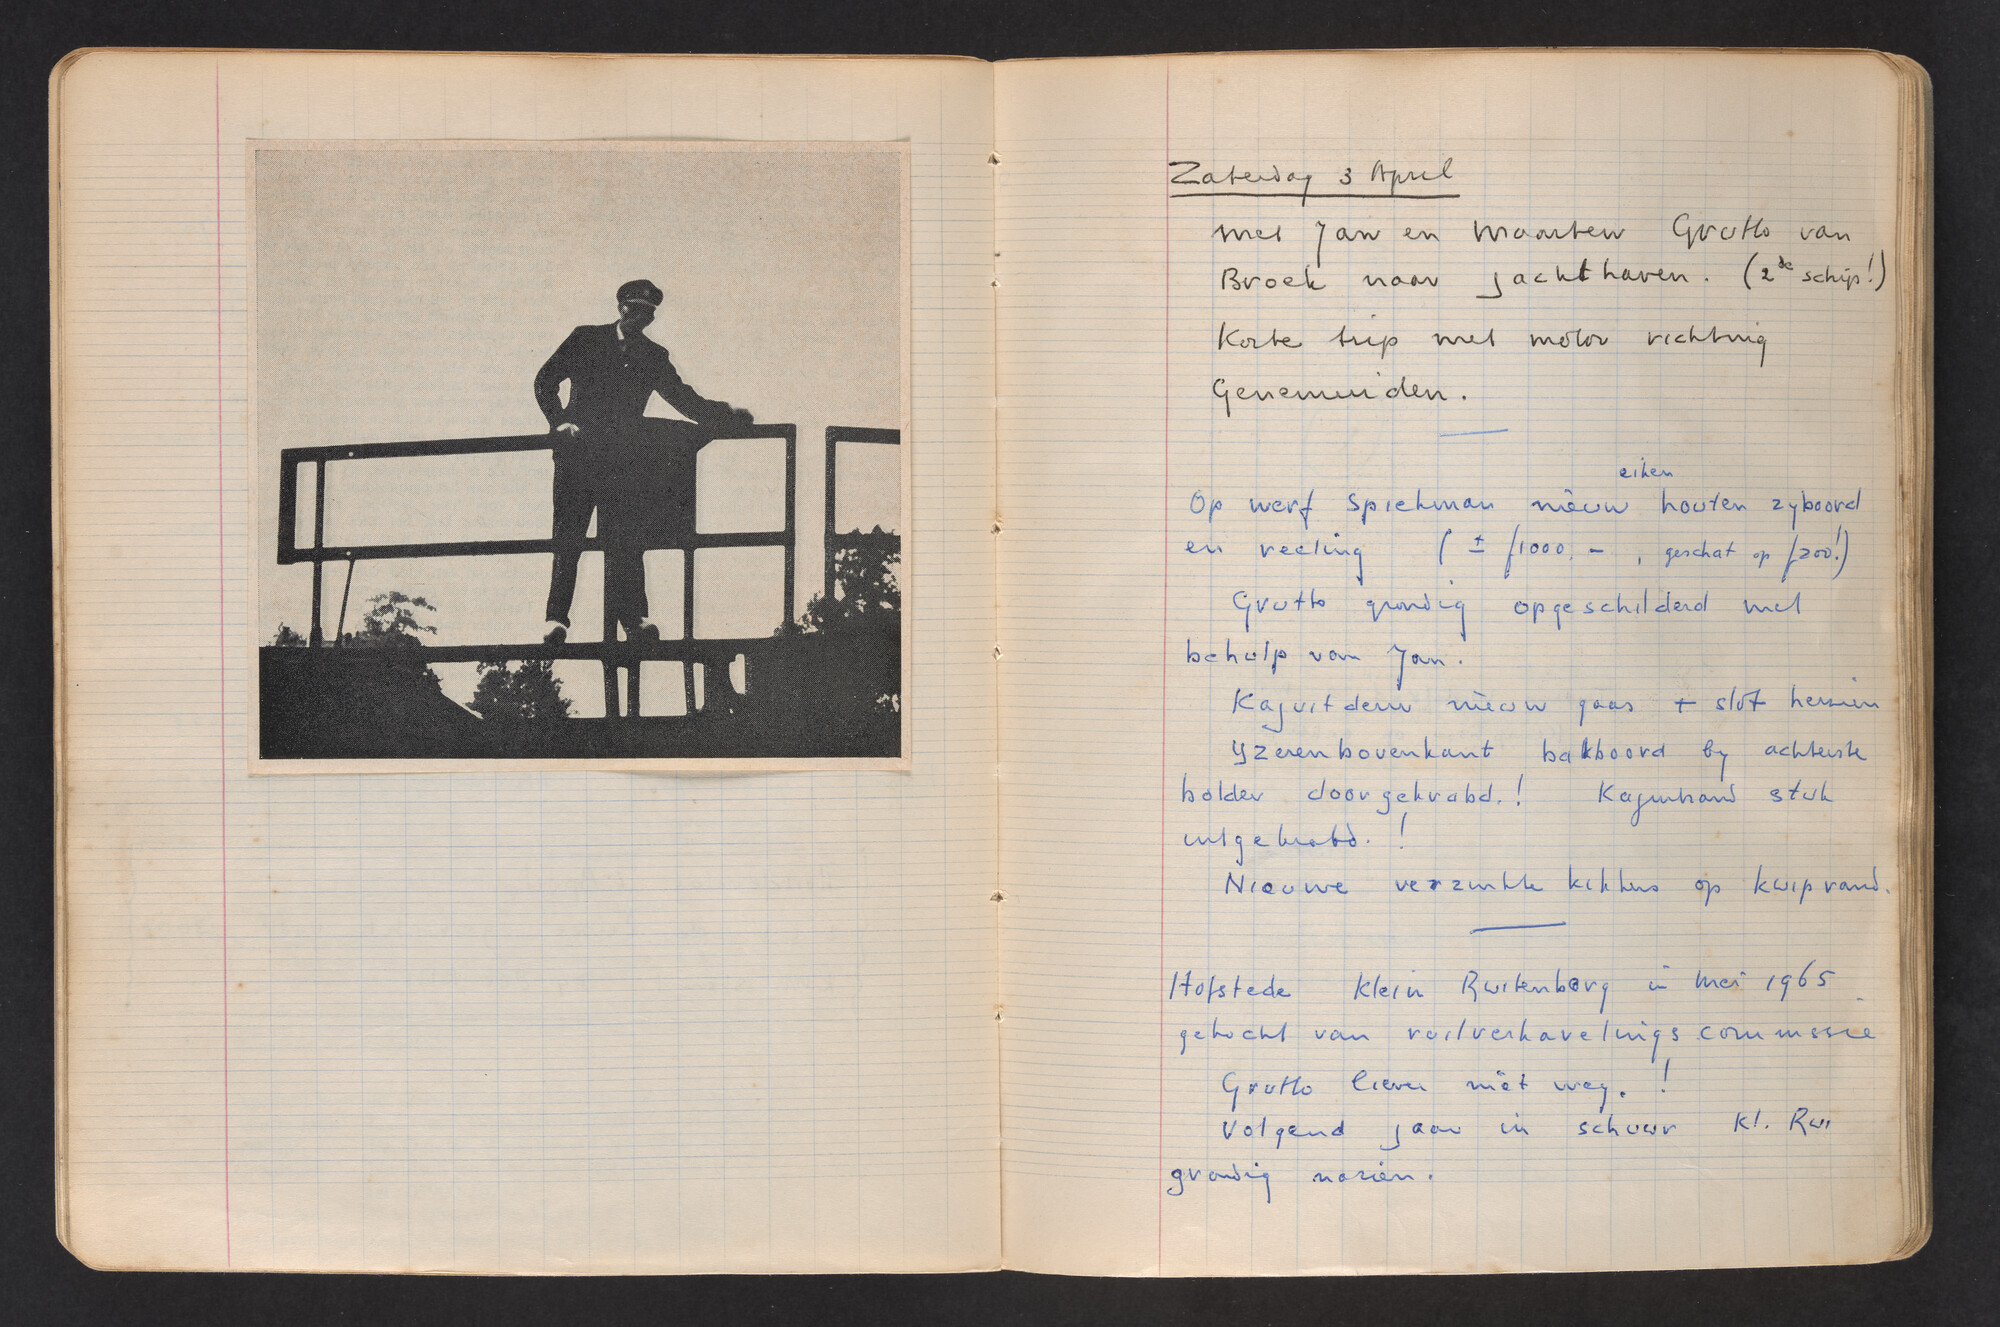 Zaterdag 3 April
met Jan en Maarten Grutto van
Broek naar jachthaven. (2de schip!)
Korte trip met motor richting
Genemuiden.
eiken
Op werf Spiekman nieuw houten zyboord
en reeling ( ± f1000.- , geschat op f200!)
Grutto grondig opgeschilderd met
behulp van Jan.
Kajuitdeur nieuw gaas + slot herzien
Yzeren bovenkant bakboord by achterste
bolder doorgekrabd.! Kajuitrand stuk
uitgekrabd. !
Nieuwe verzinkte kikkers op kuiprand.
Hofstede Klein Ruitenborg in mei 1965
gekocht van ruilverkavelings commissie
Grutto liever niet weg. !
Volgend jaar in schuur Kl. Rui
grondig nazien.